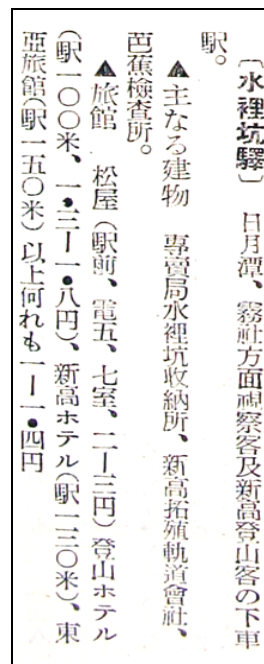 〔水裡坑驛〕　日月潭、霧社方面視察客及新高登山客の下車
駅。
▲主なる建物　專賣局水裡坑收納所、新高拓殖軌道會社、
芭蕉檢査所。
▲旅館　松屋（駅前、電五、七室、二ー三円）登山ホテル
（駅一〇〇米、一・三ー一・八円）、新高ホテル（駅一三〇米）、東
亞旅館（駅一五〇米）以上何れも一ー一・四円